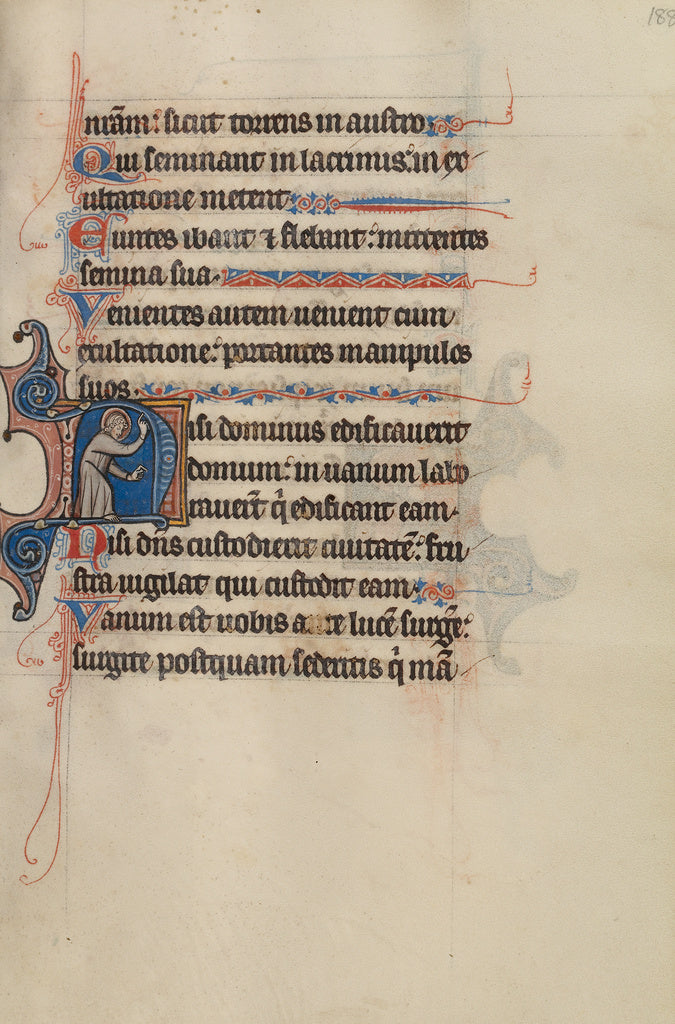 188
nrãm: sicut torrens in austro
Qui seminant in lacrimis: in ex
ultatione metent
Euntes ibant ⁊ flebant: mittentes
semina sua.
Venientes autem uenient cum
exultatione: portantes manipulos
suos.
Nisi dominus edificauerit
domum: in uanum labo
rauert̃ q̃ edificant eam.
Nisi dñs custodierit ciuitatẽ: fru
stra uigilat qui custodit eam.
Vanum est uobis ante lucẽ surgẽ:
surgite postquam sederitis q̃ mã